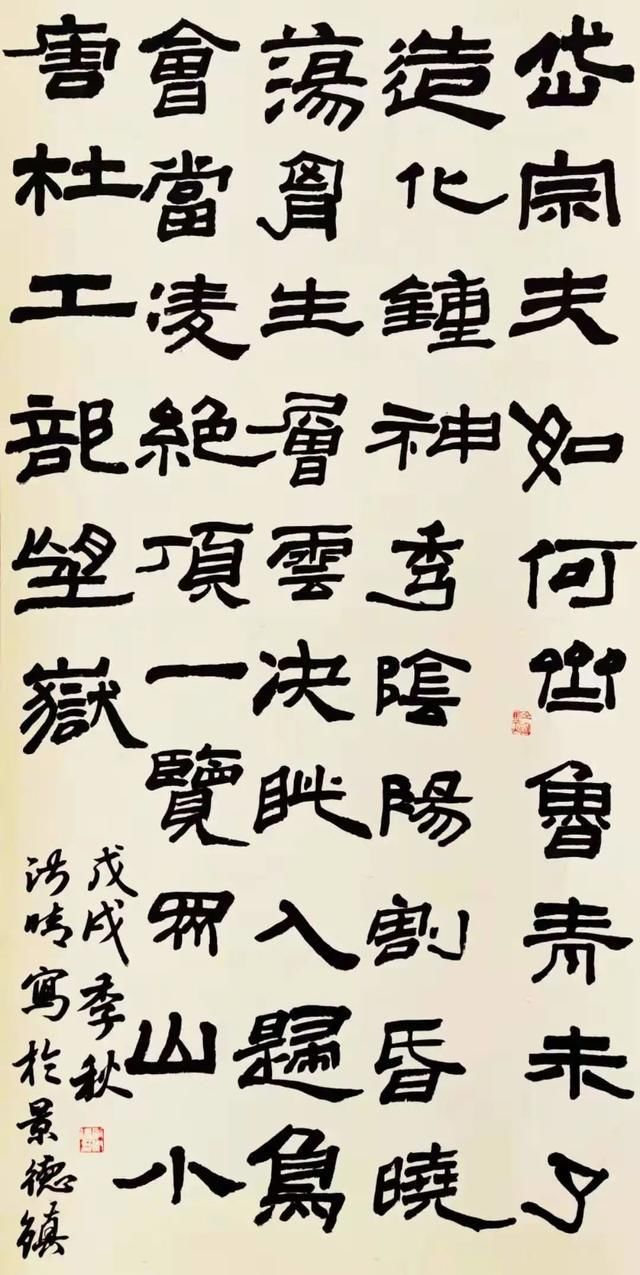 岱宗夫如何齊魯青未了
造化鍾神秀陰陽割昏曉
蕩胷生層雲決眦入歸鳥
會當凌絕頂一覽眾山小
唐杜工部望嶽
戊戌季秋
晴寫於景德鎮